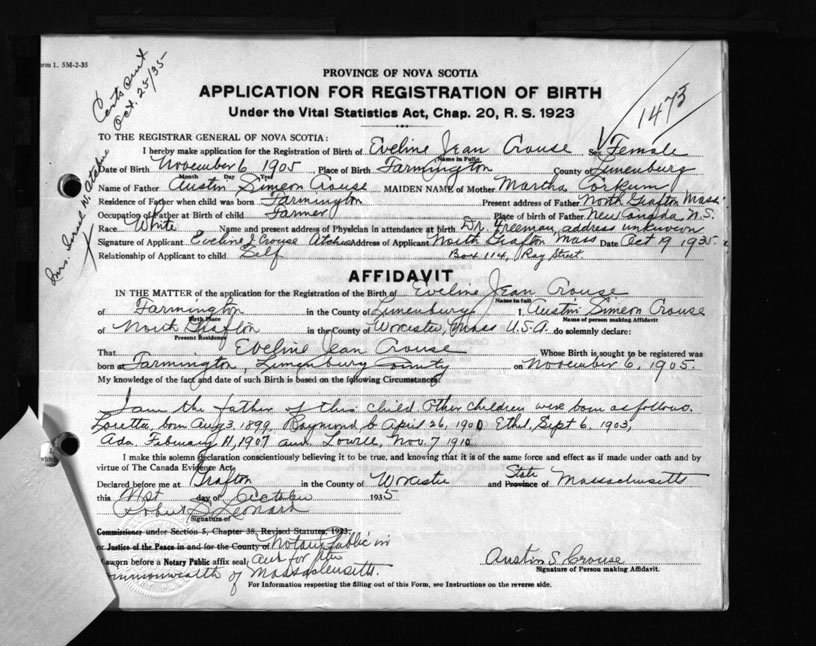 orm 1. 5M-2-35
Certs sent
Oct. 25/35
PROVINCE OF NOVA SCOTIA
APPLICATION FOR REGISTRATION OF BIRTH
Under the Vital Statistics Act, Chap. 20, R. S. 1923
1473
TO THE REGISTRAR GENERAL OF NOVA SCOTIA:
I hereby make application for the Registration of Birth of Eveline Jean Crouse Sex Female
Name in Full
Date of Birth November 6 1905 Place of Birth Farmington County of Lunenburg
Month Day Year
Name of Father Austin Simeon Crouse MAIDEN NAME of Mother Martha Corkum
Residence of Father when child was born Farmington Present address of Father North Grafton Mass
Occupation of Father at Birth of child Farmer Place of birth of Father New Canada, N.S.
Race White Name and present address of Physician in attendance at birth Dr. Freeman, address unknown
Signature of Applicant Eveline J Crouse Atchue Address of Applicant North Grafton Mass Date Oct 19 1935
Relationship of Applicant to child Self Box 114, Ray Street
Mrs. W. Atchue
AFFIDAVIT
IN THE MATTER of the application for the Registration of the Birth of Eveline Jean Crouse
Name in full
of Farmington in the County of Lunenburg I, Austin Simeon Crouse
Birth Place Name of person making Affidavit
of North Grafton in the County of Worcester, Mass U.S.A. do solemnly declare:
Present Residence
That Eveline Jean Crouse Whose Birth is sought to be registered was
born at Farmington, Lunenburg County on November 6, 1905.
My knowledge of the fact and date of such Birth is based on the following Circumstances:
I am the father of this child Other children were born as follows.
Loretta, born Aug 3. 1899, Raymond, b April 26, 1901 Ethel, Sept 6. 1903,
Ada. February 11, 1907 and Lowell, Nov. 7 1910
I make this solemn declaration conscientiously believing it to be true, and knowing that it is of the same force and effect as if made under oath and by
virtue of The Canada Evidence Act.
Declared before me at Grafton in the County of Worcester and Province of State Massachusetts
this 21st day of October 1935
Robert S Leonard
Signature of
Commissioner under Section 5, Chapter 38, Revised Statutes, 1923.
or Justice of the Peace in and for the County of Notary Public in
If sworn before a Notary Public affix seal; and for the
Commonwealth of Massachusetts.
Austin S. Crouse
Signature of Person making Affidavit.
For Information respecting the filling out of this Form, see Instructions on the reverse side.